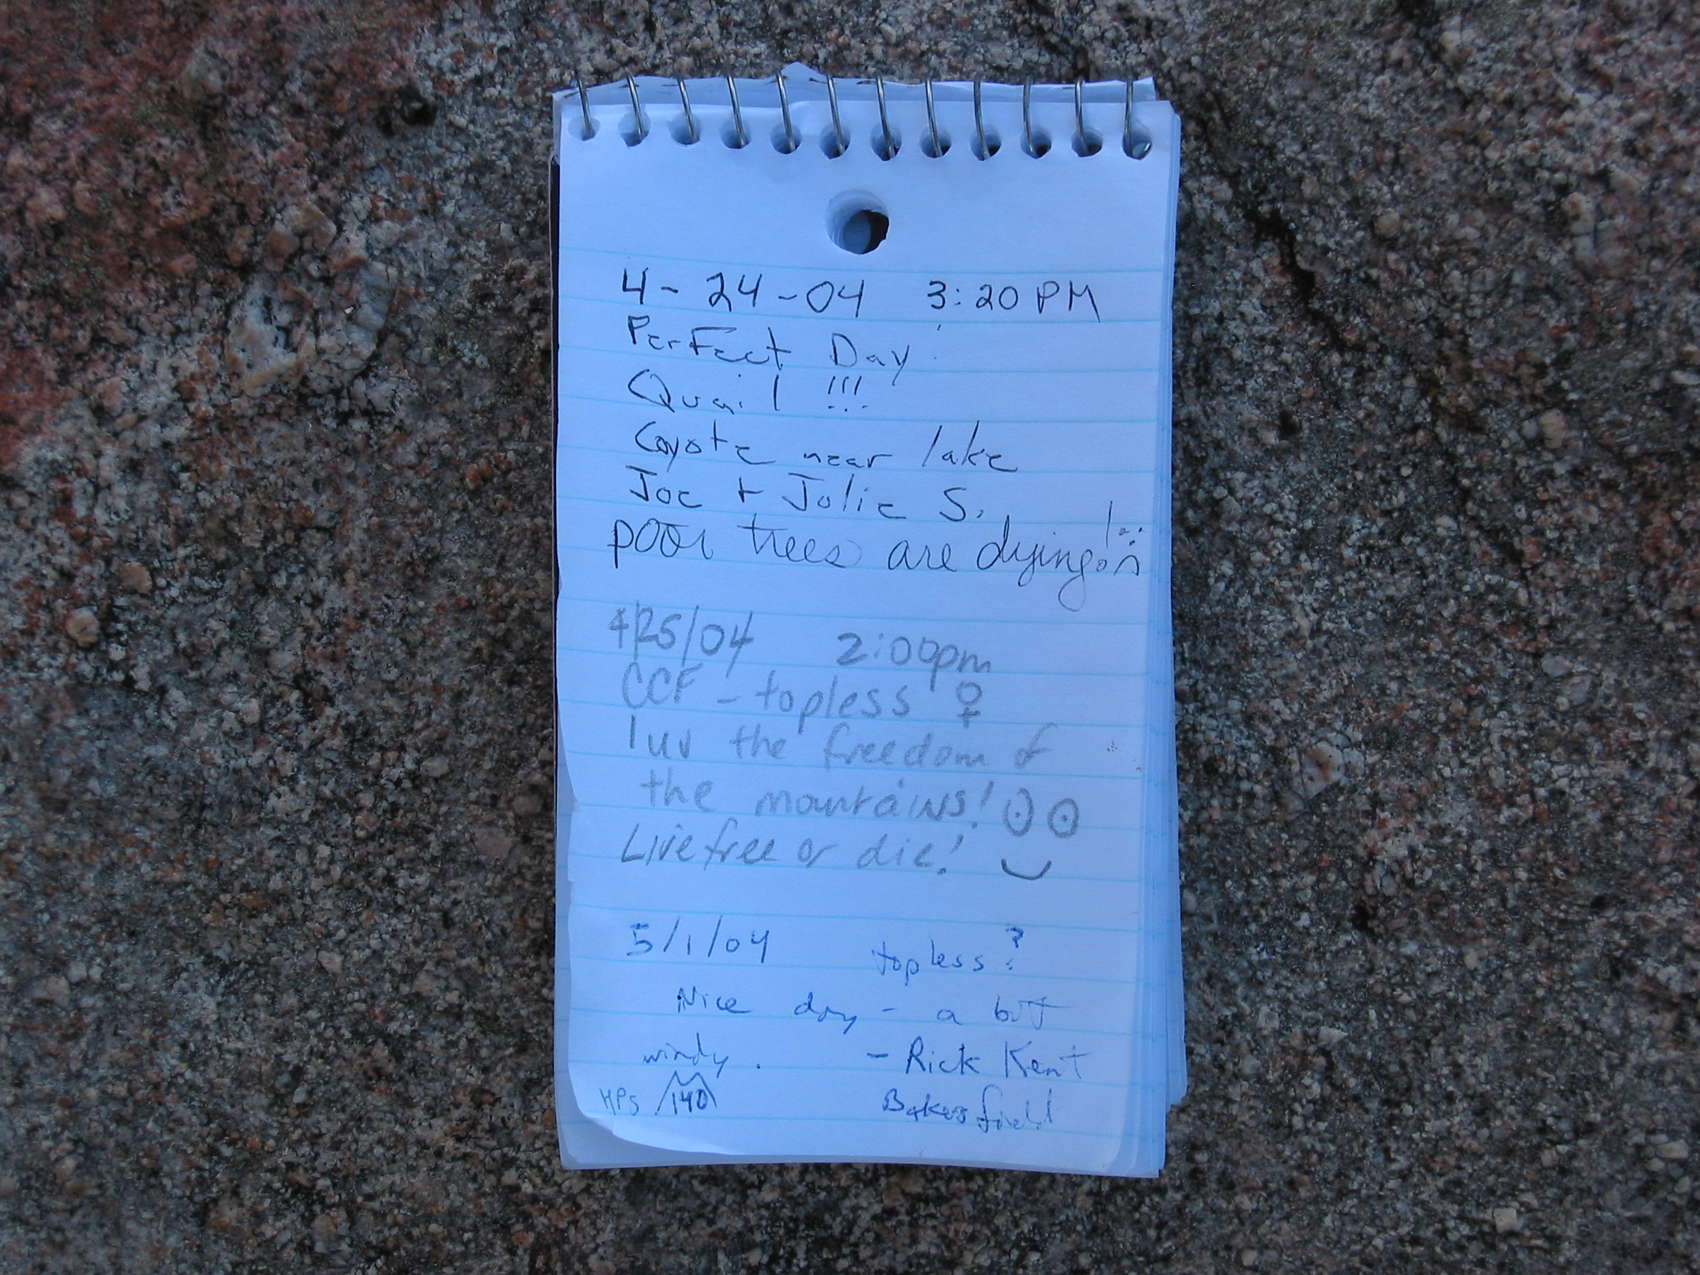 4-24-04 3:20 PM
Perfect Day
Quail !!!
Coyote near lake
Joe + Jolie S.
poor trees are dying!
4/25/04 2:00pm
CCF - topless ♀
luv the freedom of
the mountains!
Live free or die!
5/1/04 topless?
Nice day - a bit
windy. - Rick Kent
HPS 140 Bakersfield